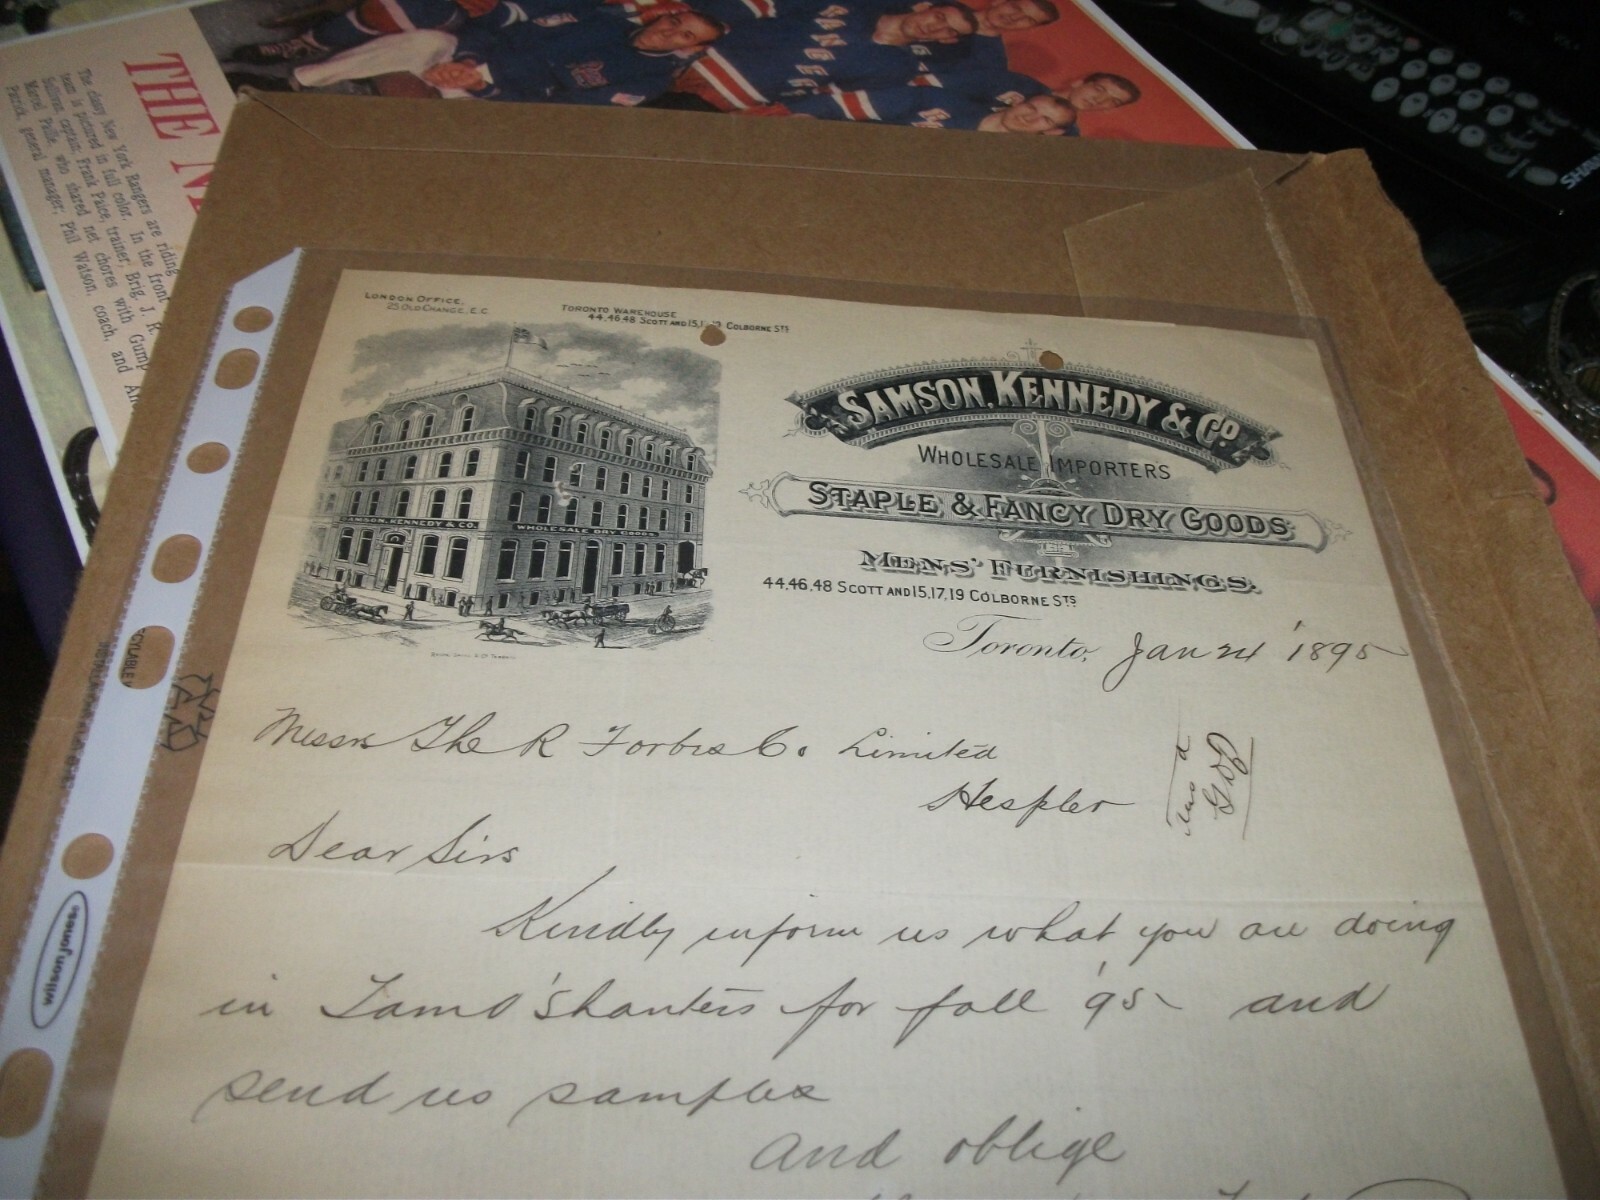 THE N
The classy New York Rangers are riding
team is pictured in full color. In the front
Sullivan, captain; Frank Paice, trainer; Brig. J. R.
Marcel Paille, who shared net chores with Gump
Patrick, general manager; Phil Watson, coach, and
SHA
LONDON OFFICE,
25 OLD CHANGE, E.C.
TORONTO WAREHOUSE
44,46,48 SCOTT AND 15,1 19 COLBORNE STS
SAMSON, KENNEDY & CO.
WHOLESALE IMPORTERS
STAPLE & FANCY DRY GOODS
MENS' FURNISHINGS.
44,46,48 SCOTT AND 15,17,19 COLBORNE STS
SAMSON, KENNEDY & CO. WHOLESALE DRY GOODS
Toronto, Jan 24 1895
Messrs The R Forbes Co. Limited
Hespler
Dear Sirs
Kindly inform us what you are doing
in Tam O'Shanters for fall '95 and
send us samples
and oblige
wilson jones